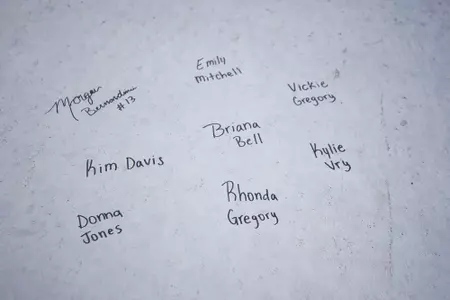 Emily
Mitchell
Morgan
#13
Vickie
Gregory
Briana
Bell
Kim Davis
Kylie
Vry
Donna
Jones
Rhonda
Gregory